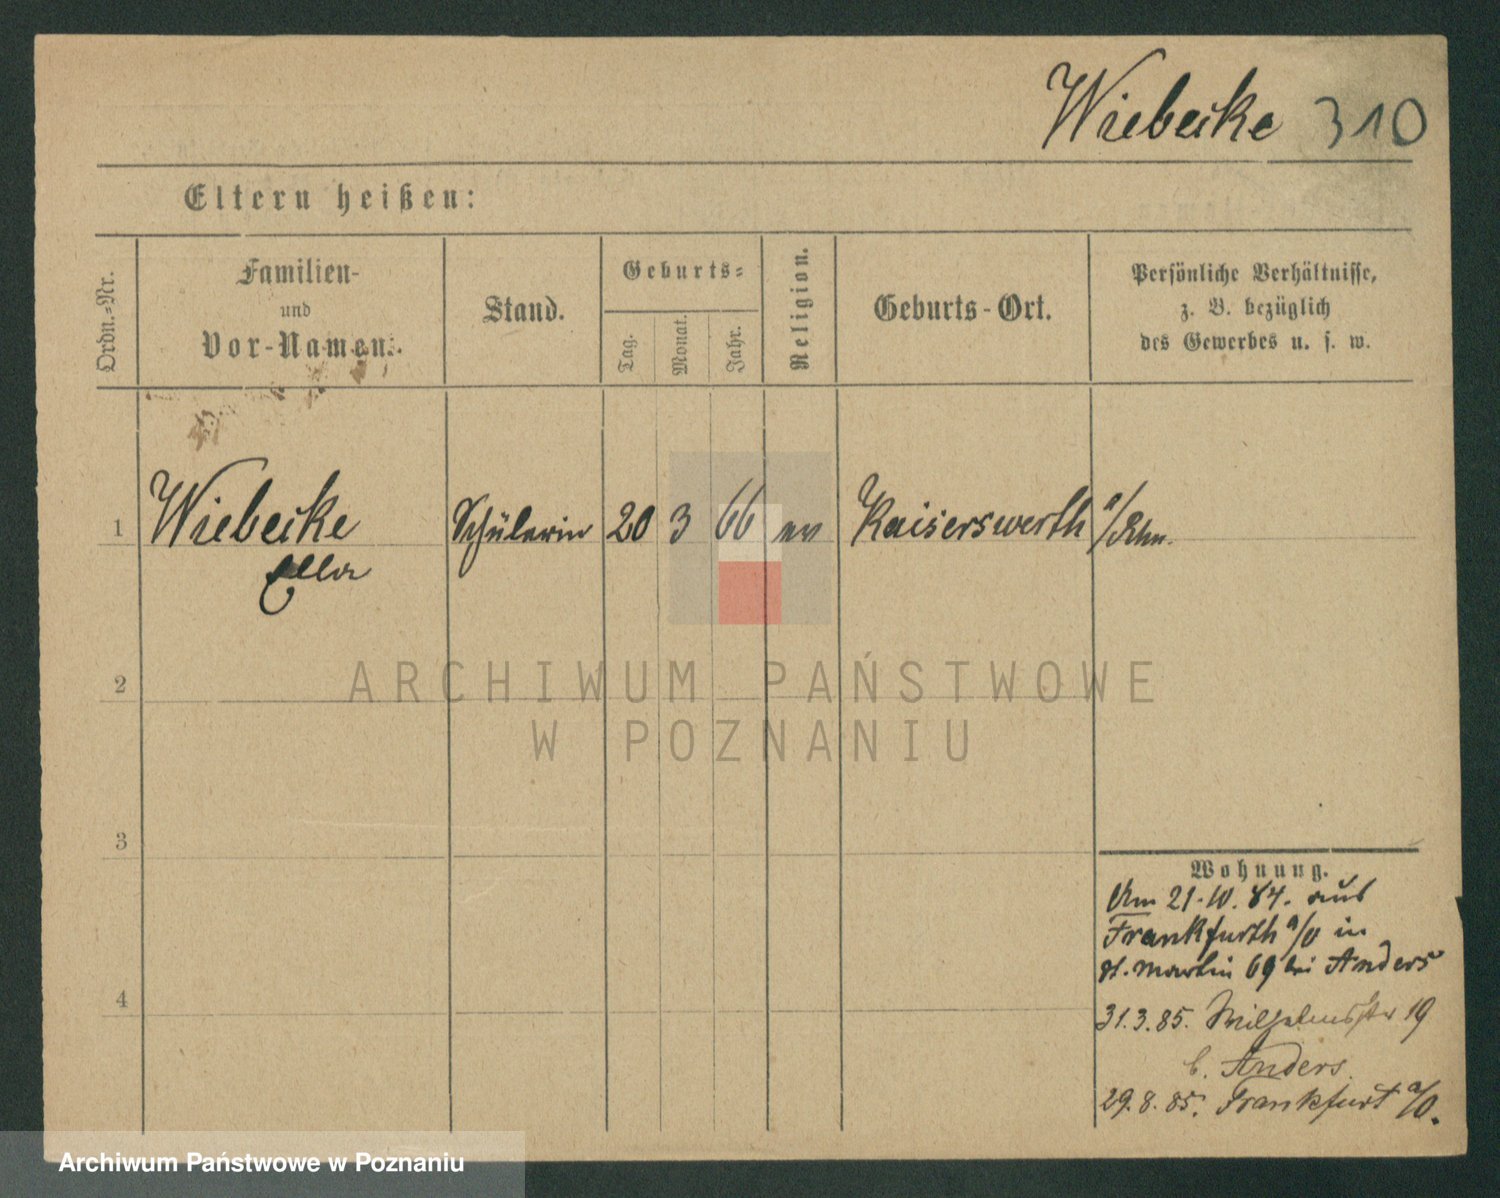 Wiebecke 310
Eltern heißen:
Ordn.-Nr.
Familien-
und
Vor-Namen.
Stand.
Geburts-
Tag.
Monat.
Jahr.
Religion.
Geburts-Ort.
Persönliche Verhältnisse,
z. B. bezüglich
des Gewerbes u. s. w.
1 Wiebecke Schülerin 20 3 66 ev Kaiserswerth a/Rhn.
Ella
2
ARCHIWUM PAŃSTWOWE
W POZNANIU
3
4
Wohnung.
Am 21.10.84. aus
Frankfurth a/O in
St. Martin 69 bei Anders
31.3.85. Wilhelmsstr 19
b. Anders.
29.8.85. Frankfurt a/O.
Archiwum Państwowe w Poznaniu